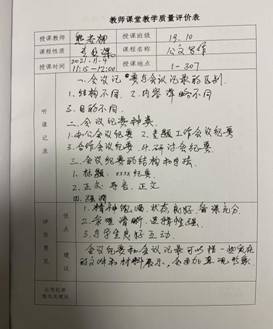 教师课堂教学质量评价表
授课教师
授课班级 19.10
课程性质 专业课
课程名称 公文写作
授课时间 2021.11.4 11:15-12:00
授课地点 1-307
听课记录
一.会议纪要与会议记录的区别.
1.结构不同. 2.内容详略不同
3.目的不同.
二.会议纪要种类.
1.办公会议纪要 2.专题工作会议纪要
3.会议纪要 4.研讨会纪要.
三.会议纪要的结构和写法
1.标题:xxxx纪要.
2.正文 导言. 正文
四.
评价意见
优点
1.精神饱满 状态良好 备课充分.
2.条理清晰 逻辑性强.
3.与学生良好互动
建议
会议纪要和会议记录可以找一些实在的文件和材料展示,会更加直观